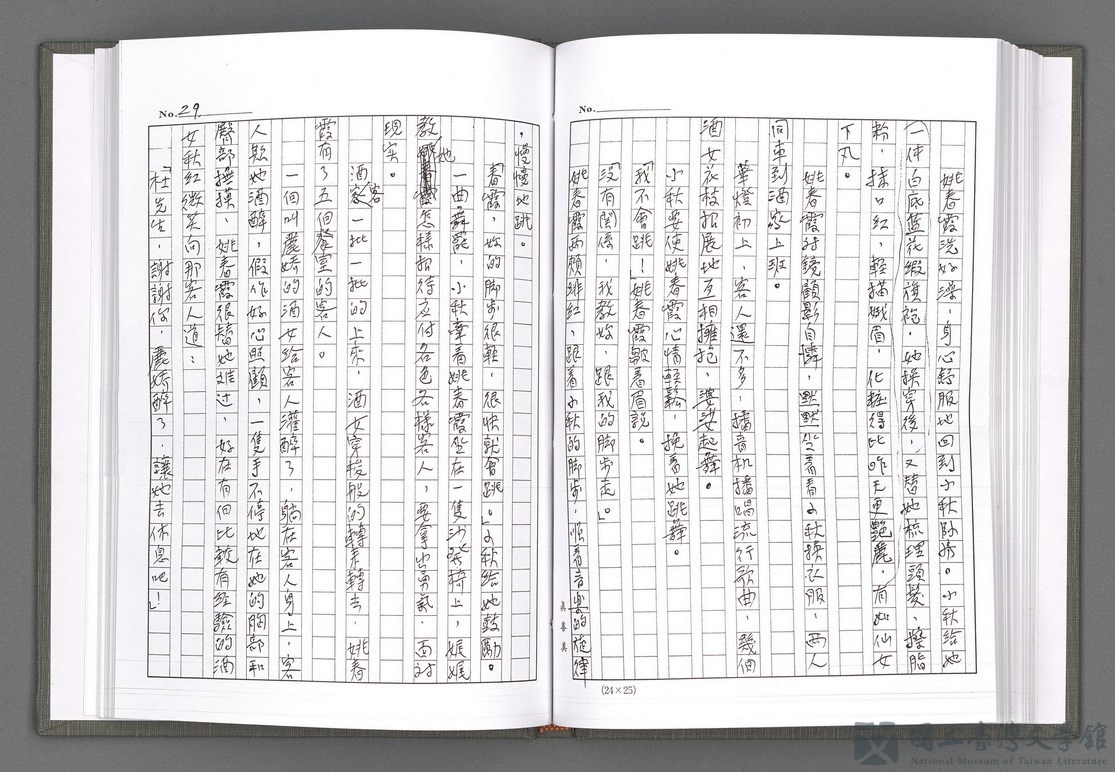 No.
姚春霞洗好澡，身心舒服地回到小秋臥房。小秋給她
一件白底藍花緞旗袍，她換穿後，又替她梳理頭髮、擦脂
粉，抹口紅，輕描娥眉，化粧得比昨天更艷麗，有如仙女
下凡。
姚春霞對鏡顧影自憐，默默坐着看小秋換衣服，兩人
同車到酒家上班。
華燈初上，客人還不多，播音机播唱流行歌曲，幾個
酒女花枝招展地互相擁抱，婆娑起舞。
小秋要使姚春霞心情輕鬆，挽着她跳舞。
「我不會跳！」姚春霞皺着眉說。
「沒有関係，我教妳，跟我的脚步走。」
姚春霞兩頰緋紅，跟着小秋的脚步，順着音樂的旋律
(24×25)
No. 29
，慢慢地跳。
「春霞，妳的脚步很輕，很快就會跳。」小秋給她鼓勵。
一曲舞罷，小秋牽着姚春霞坐在一隻沙發椅上，娓娓
教她怎樣招待应付各色各樣客人，要拿出勇氣，面对
現实。
酒客一批一批的上來，酒女穿梭般的轉來轉去，姚春
霞有了五個餐室的客人。
一個叫麗嬌的酒女給客人灌醉了，躺在客人身上，客
人欺她酒醉，假作好心照顧，一隻手不停地在她的胸部和
臀部摸摸，姚春霞很替她难过，好在有個比較有經驗的酒
女秋紅微笑向那客人道：
「杜先生，謝謝你，麗嬌醉了，讓她去休息吧！」
國立臺灣文學館
National Museum of Taiwan Literature